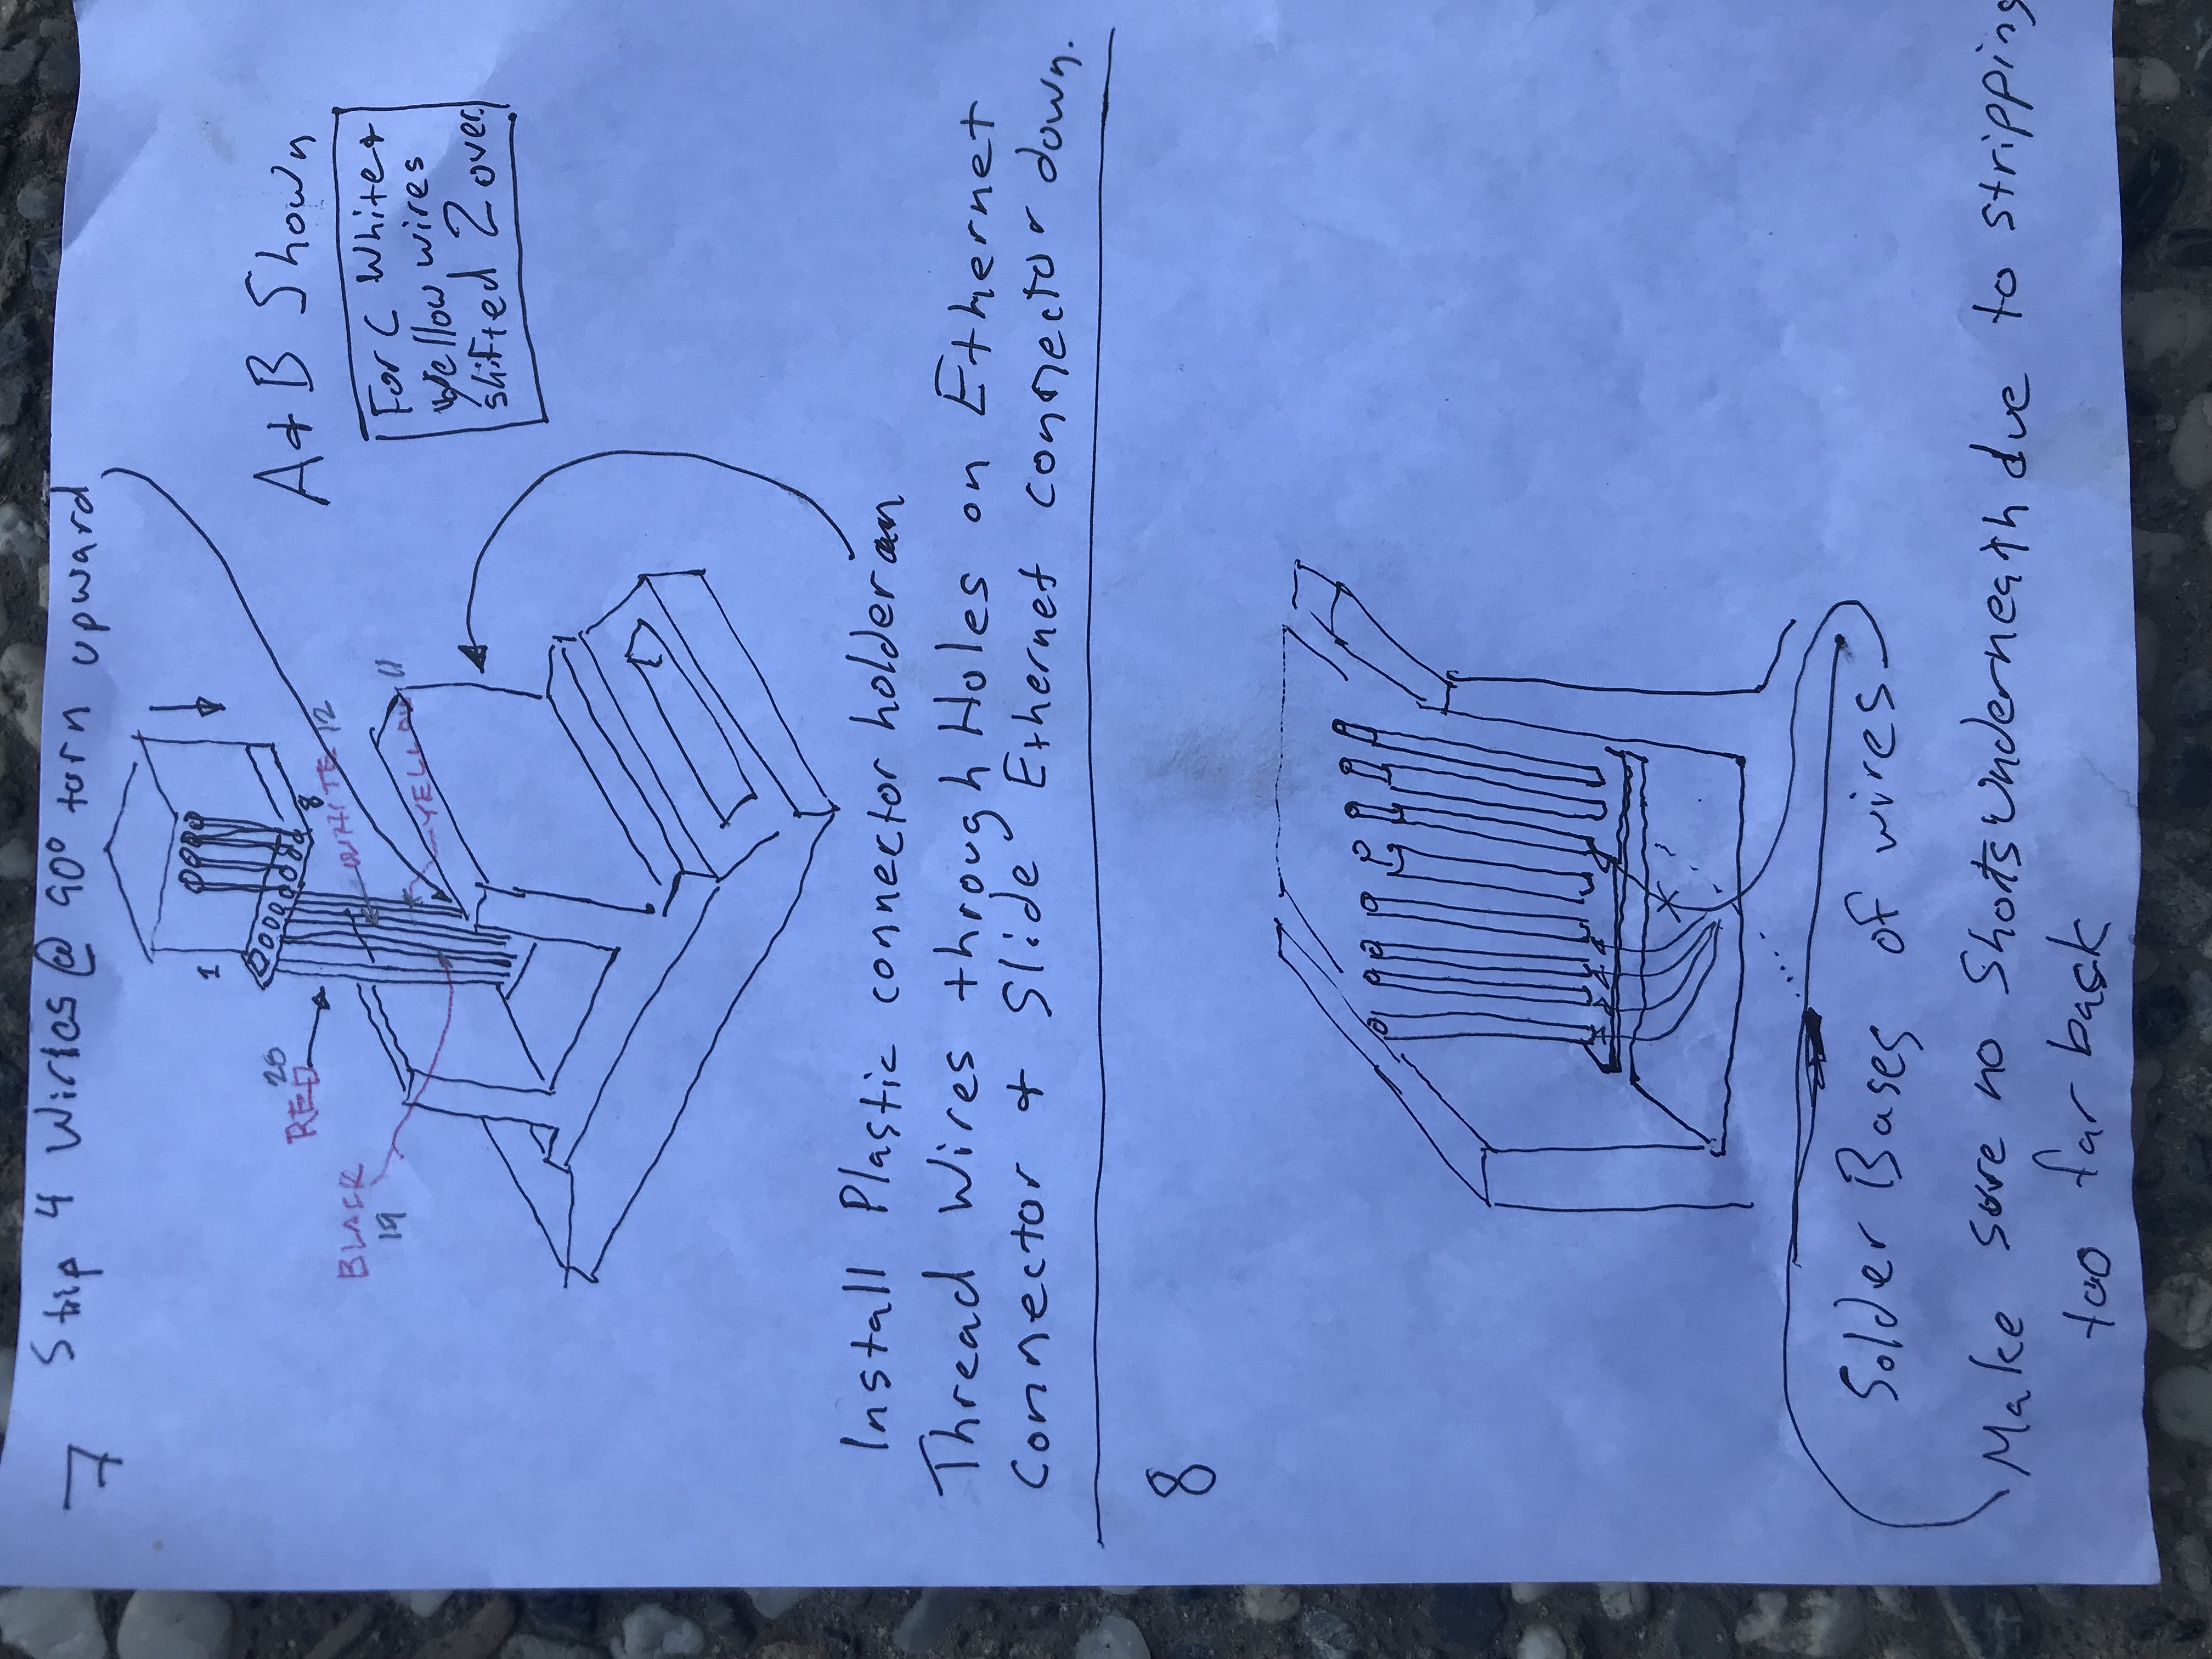 7
Strip 4 Wires @ 90° turn upward
1
20
RED
8
WHITE 12
BLACK
19
YELLOW 11
A & B Shown
For C White &
yellow wires
shifted 2 over.
1
Install Plastic connector holder an
Thread Wires through Holes on Ethernet
Connector & Slide Ethernet connector down.
8
Solder Bases of wires
Make sure no Shorts Underneath due to stripping
too far back